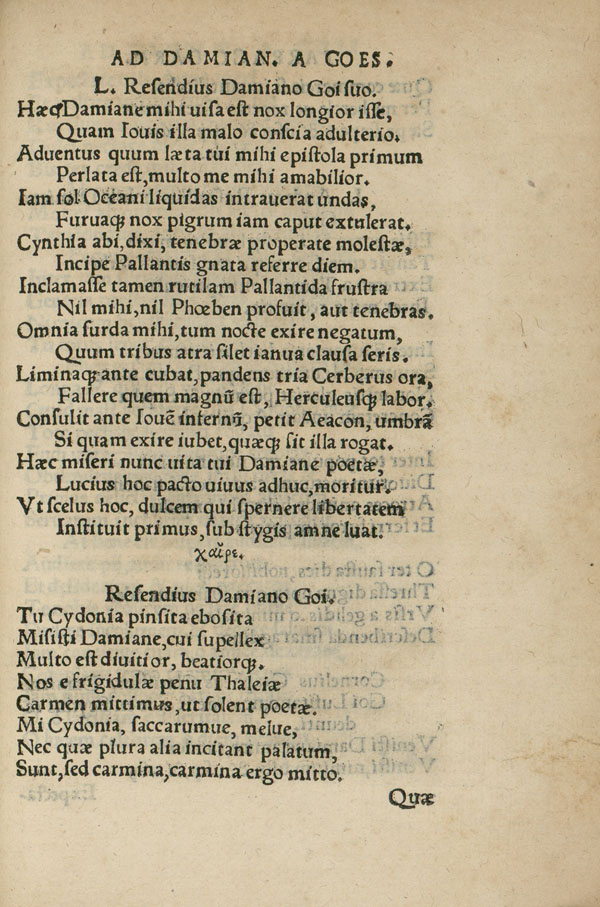 AD DAMIAN. A GOES.
L. Resendius Damiano Goi suo.
Hæcꝙ Damiane mihi uisa est nox longior isse,
Quam Iouis illa malo conscia adulterio.
Aduentus quum læta tui mihi epistola primum
Perlata est, multo me mihi amabilior.
Iam sol Oceani liquidas intrauerat undas,
Furuaqꝫ nox pigrum iam caput extulerat.
Cynthia abi, dixi, tenebræ properate molestæ,
Incipe Pallantis gnata referre diem.
Inclamasse tamen rutilam Pallantida frustra
Nil mihi, nil Phœben profuit, aut tenebras.
Omnia surda mihi, tum nocte exire negatum,
Quum tribus atra silet ianua clausa seris.
Liminaqꝫ ante cubat, pandens tria Cerberus ora,
Fallere quem magnũ est, Herculeusqꝫ labor.
Consulit ante Iouẽ infernũ, petit Aeacon, umbrã
Si quam exire iubet, quæqꝫ sit illa rogat.
Hæc miseri nunc uita tui Damiane poetæ,
Lucius hoc pacto uiuus adhuc, moritur.
Vt scelus hoc, dulcem qui spernere libertatem
Instituit primus, sub stygis amne luat.
χαῖρε.
Resendius Damiano Goi.
Tu Cydonia pinsita ebosita
Misisti Damiane, cui supellex
Multo est diuitior, beatiorqꝫ.
Nos e frigidulæ penu Thaleiæ
Carmen mittimus, ut solent poetæ.
Mi Cydonia, saccarumue, melue,
Nec quæ plura alia incitant palatum,
Sunt, sed carmina, carmina ergo mitto.
Quæ